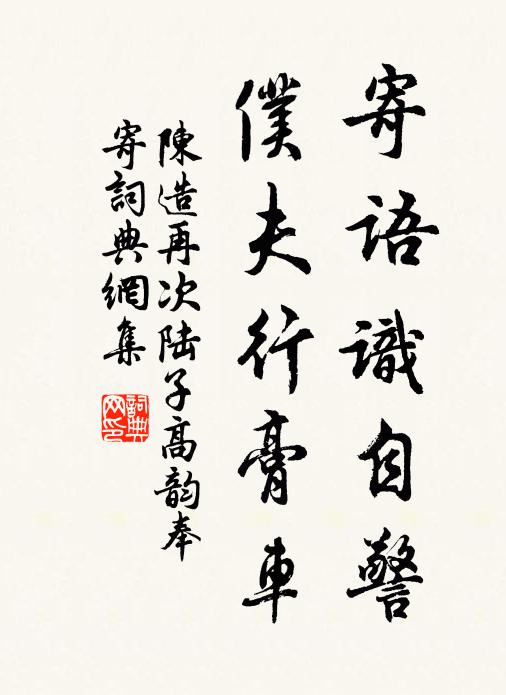 寄語識自警
僕夫行膏車
陳造再次陆子高韵奉
寄詞典網集
詞典网印